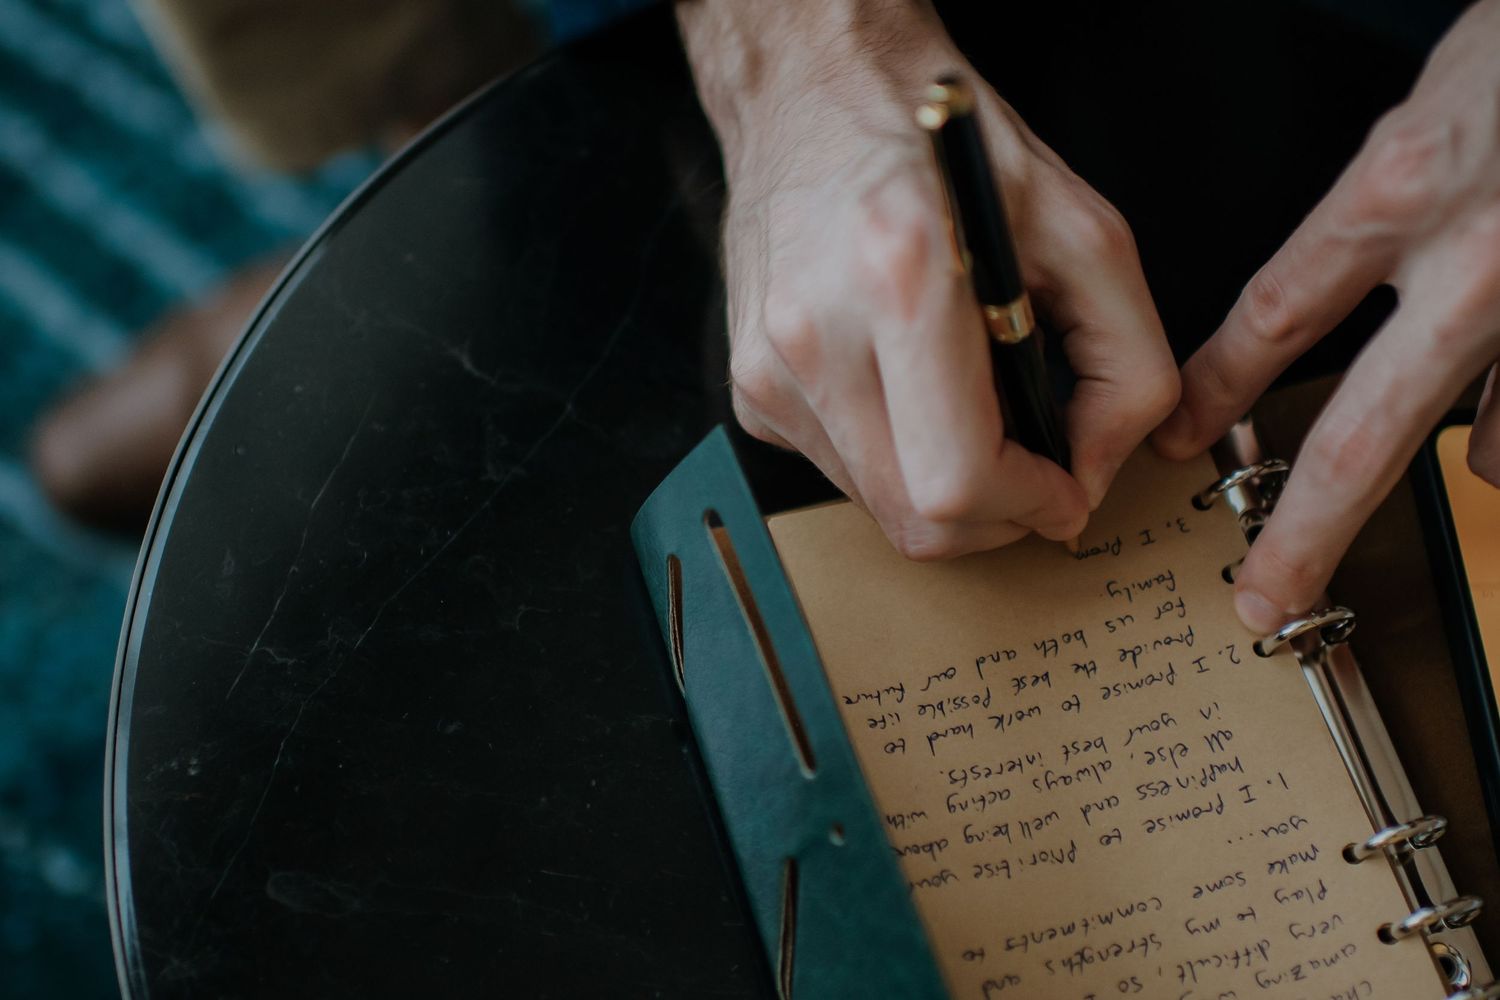 amazing
very difficult, so I
play to my strengths and
make some commitments to
you...
1. I promise to prioritise your
happiness and wellbeing above
all else, always acting with
in your best interests.
2. I promise to work hard to
provide the best possible life
for us both and our future
family.
3. I prom